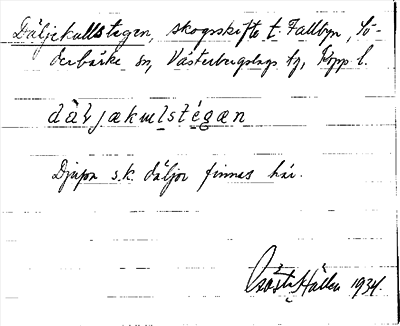 Däljekullstegen, skogsskifte t. Fallbyn, Sö-
derbärke sn, Västerbergslags hd, Kopp l.
dàljækulstégæn
Djupa s.k. däljor finnas här.
Gösta Hallen 1934.